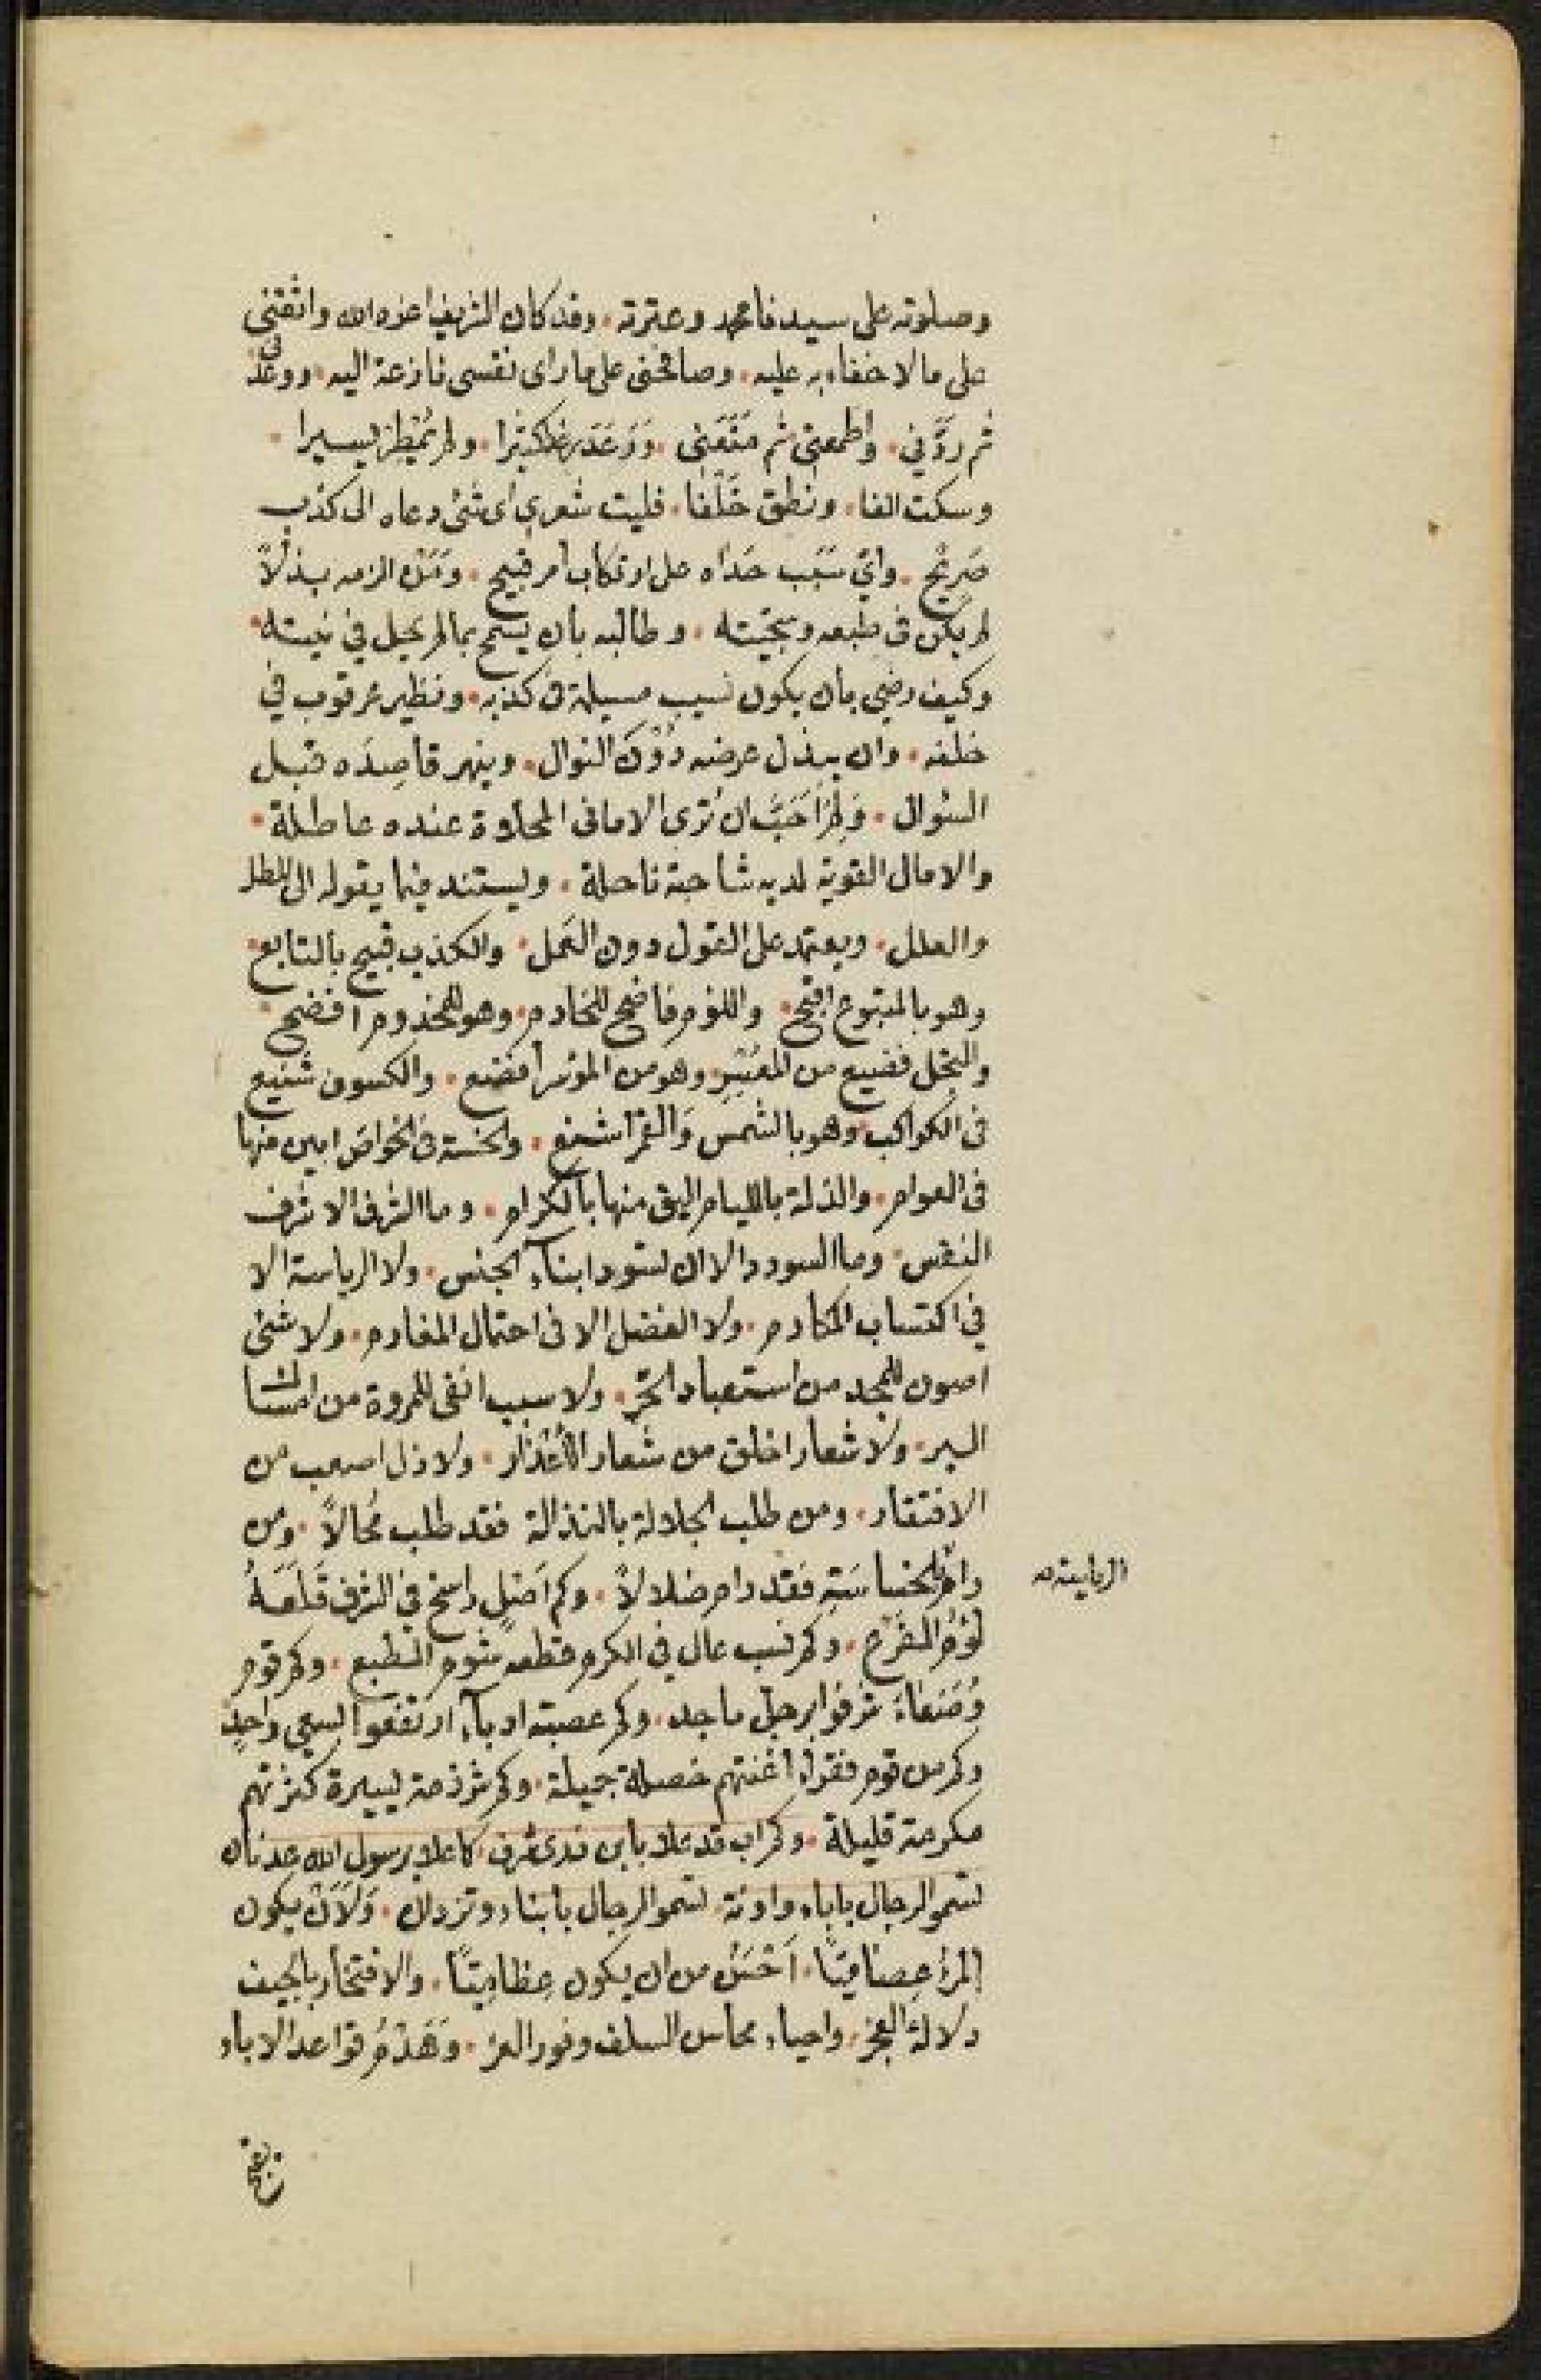 وصلوته على سيدنا محمد وعترته وقد كان الشريف اعزه الله واثقنى
على ما لا خفاء به عليه وصافحنى على ما راى نفسى نازعة اليه ووعد
ثم ردني واطمعنى ثم منعنى ورعد كثيرا ولم يمطر يسيرا
وسكت الفا ونطق خلفا فليت شعرى اى شئ دعاه الى كذب
صريح واي سبب حداه على ارتكاب امر قبيح ومن الزمه بذلا
لم يكن فى طبعه وسجيته وطالبه بأن يسمح بما لم يحل في نيته
وكيف رضي بأن يكون نسيب مسيلمة فى كذبه ونظير عرقوب في
خلفه وان يبذل عرضه دون النوال وينهر قاصده قبل
السؤال ولم احب ان ترى الامانى المحلاوة عنده عاطلة
والامال القوية لديه شاحبة ناحلة ويستند فيما يقوله الى المطل
والعلل ويعتمد على القول دون العمل والكذب قبيح بالتابع
وهو بالمتبوع اقبح واللؤم فاضح للخادم وهو للمخدوم افضح
والبخل فضيع من المعسر وهو من الموسر أفضع والكسوف شنيع
فى الكواكب وهو بالشمس والقمر اشنع والخسة فى الخواص ابين منها
فى العوام والذلة باللئيام اليق منها بالكرام وما الشرف الا شرف
النفس وما السودد الا ان تسود ابناء الجنس ولا الرياسة الا
في اكتساب المكارم ولا الفضل الا فى احتمال المغارم ولا شئ
اصون للمجد من استعباد الحر ولا سبب انفى للمروة من
السر ولا شعار اخلق من شعار الاغدار ولا ذل اصعب من
الافتقار ومن طلب الجلالة بالنذالة فقد طلب محالا ومن
رام بالخساسة فقد رام ضلالا وكم اصل راسخ في الشرف قلعه
الرياسة صح
لؤم الفرع وكم نسب عال في الكرم قطعه شوم الطبع وكم قوم
وضعاء شرفوا برجل ماجد وكم عصبة ادباء ارتفعوا بسعي واحد
وكم من قوم فقراء اغنتهم خصلة جميلة وكم شرذمة يسيرة كثرتهم
مكرمة قليلة وكم اب قد علا بابن ذرى شرف كما علا برسول الله عدنان
تسمو الرجال باباء واونة تسمو الرجال بأبناء وتزدان ولأن يكون
المرء عصاميا احسن من ان يكون عظاميا والافتخار بالجيف
دلالة العجز واحياء محاسن السلف ونور العز وهدم قواعد الاباء